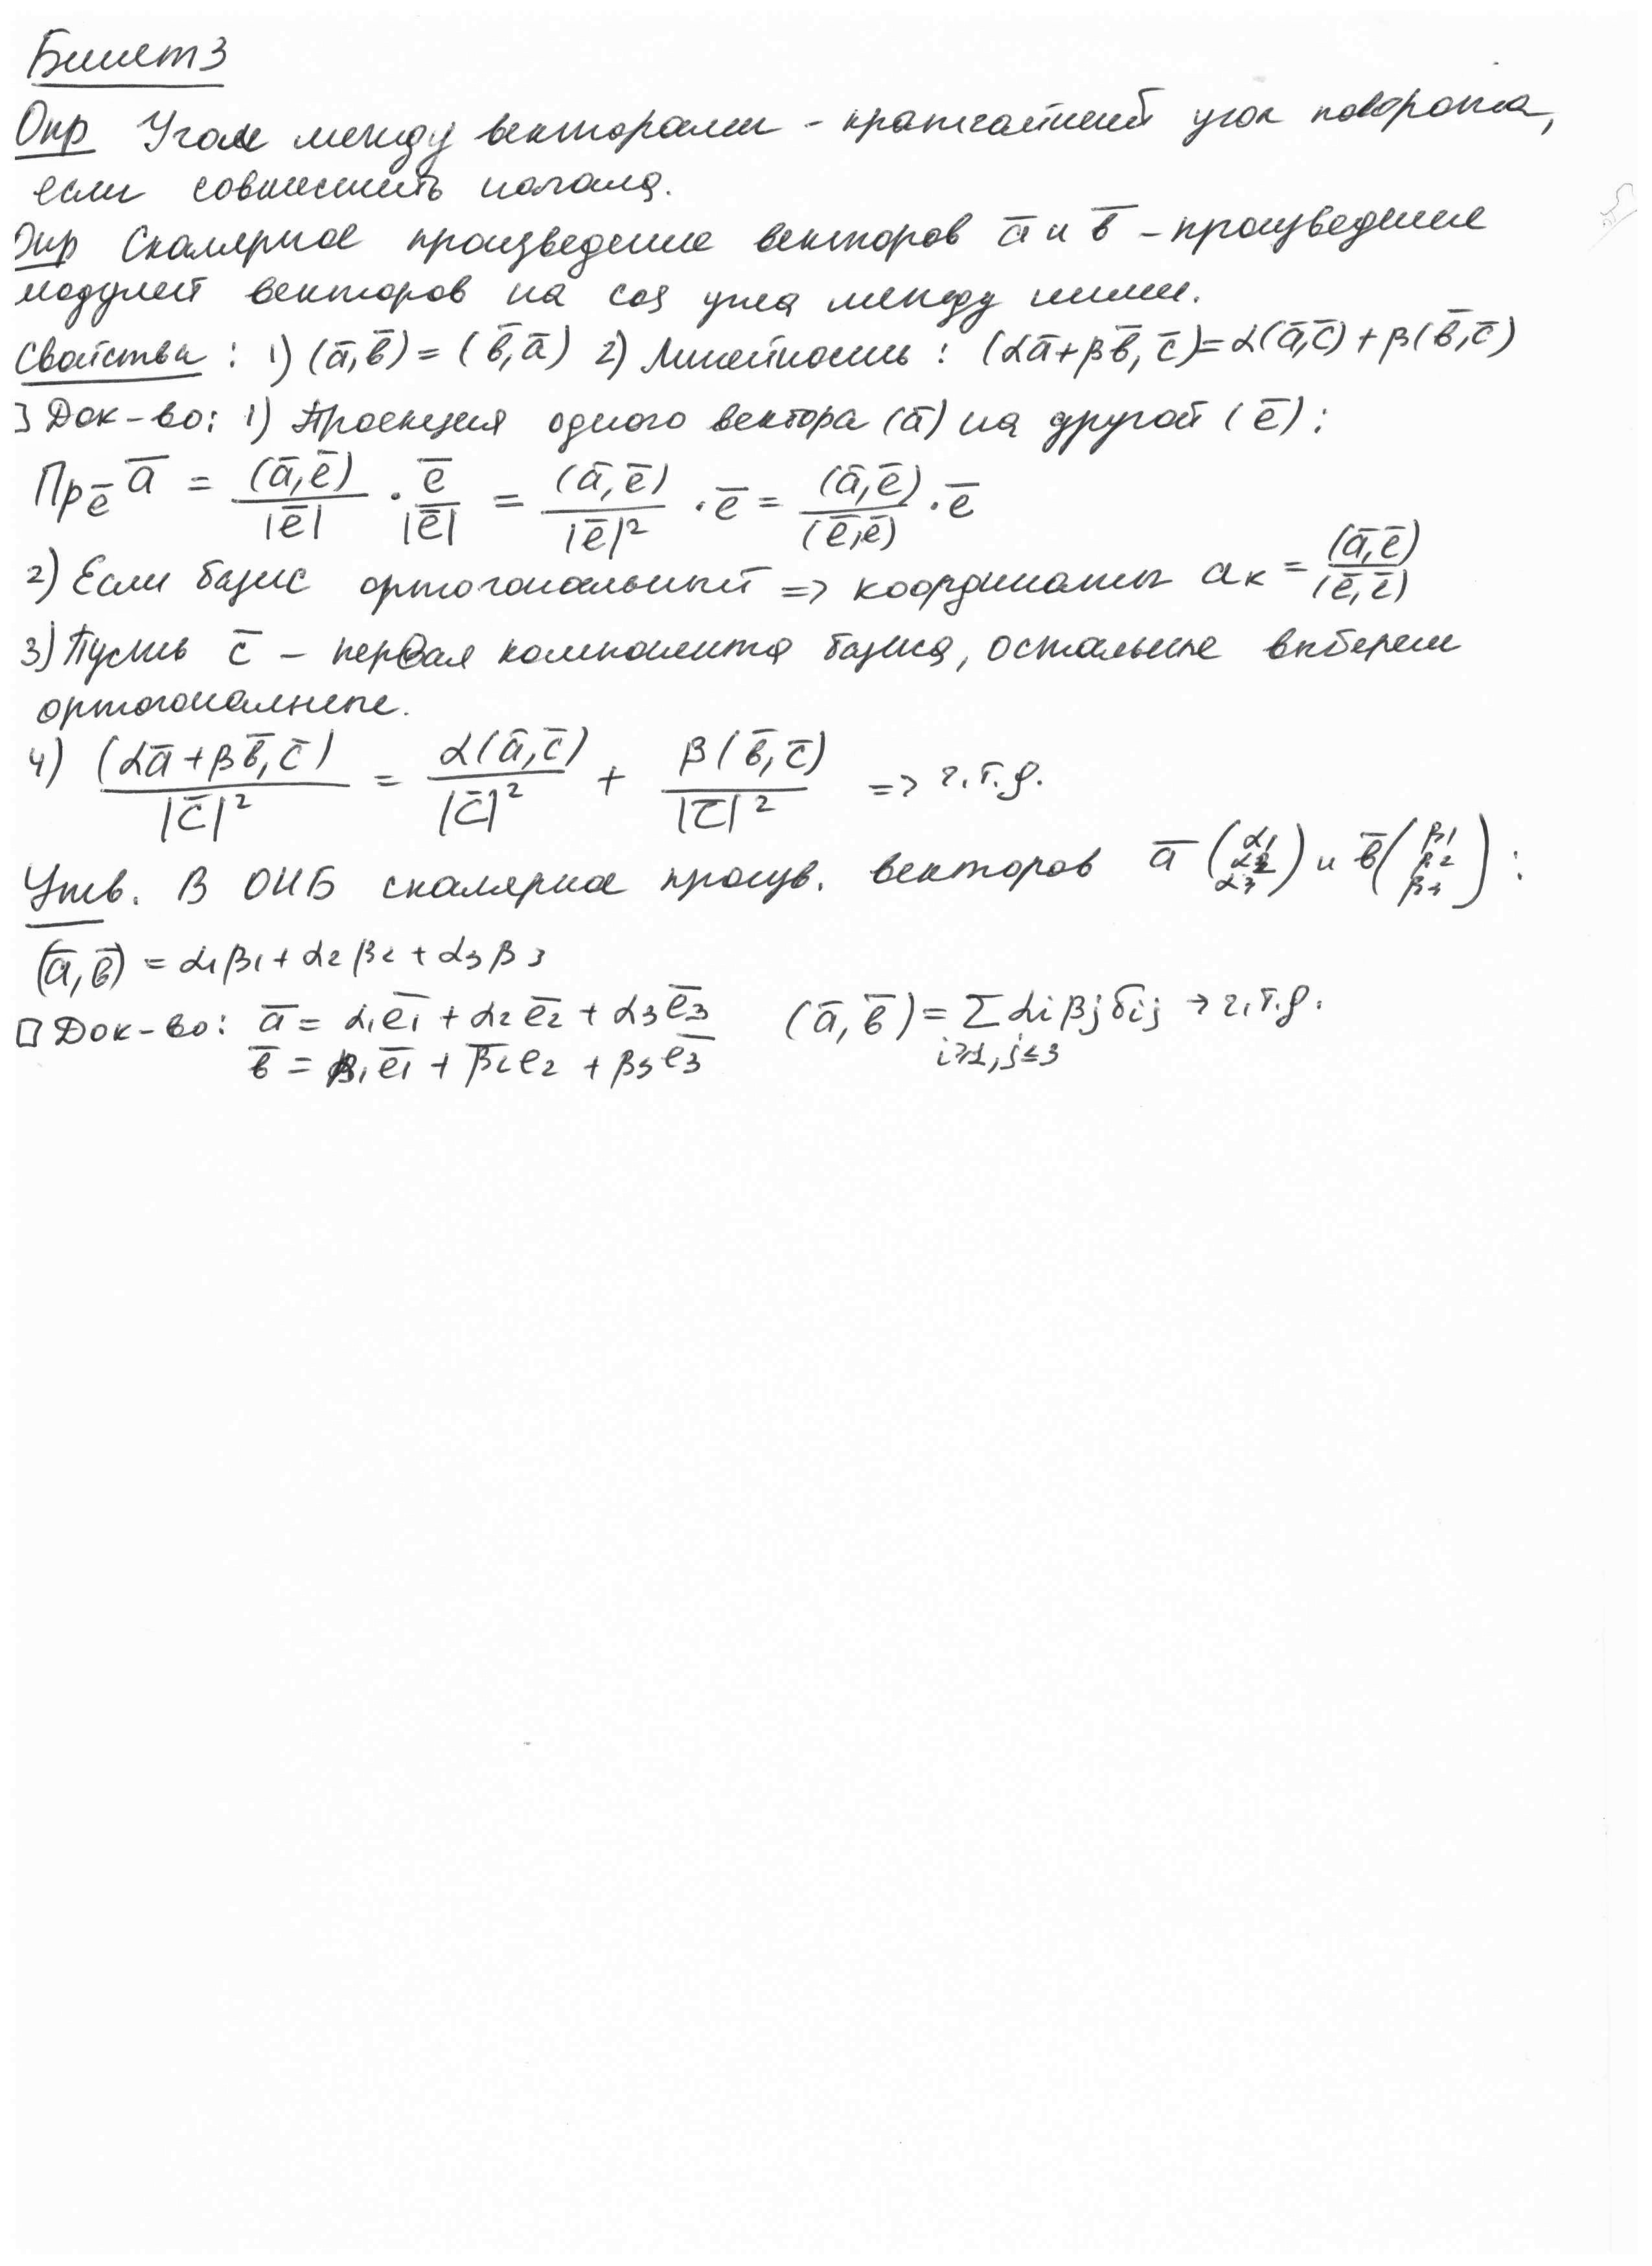 Билет 3
Опр Угол между векторами - кратчайший угол поворота,
если совместить начала.
Опр Скалярное произведение векторов a̅ и b̅ - произведение
модулей векторов на cos угла между ними.
Свойства: 1) (a̅, b̅) = (b̅, a̅) 2) Линейность: (αa̅ + βb̅, c̅) = α(a̅, c̅) + β(b̅, c̅)
Док-во: 1) Проекция одного вектора (a̅) на другой (e̅):
Пр_e̅ a̅ = (a̅, e̅)/|e̅| · e̅/|e̅| = (a̅, e̅)/|e̅|² · e̅ = (a̅, e̅)/(e̅, e̅) · e̅
2) Если базис ортогональный => координаты aк = (a̅, e̅)/(e̅, e̅)
3) Пусть c̅ - первая компонента базиса, остальные выберем
ортогоналные.
4) (αa̅ + βb̅, c̅)/|c̅|² = α(a̅, c̅)/|c̅|² + β(b̅, c̅)/|c̅|² => ч.т.д.
Утв. В ОНБ скалярное произв. векторов a̅ (α1 α2 α3) и b̅ (β1 β2 β3):
(a̅, b̅) = α1β1 + α2β2 + α3β3
□ Док-во: a̅ = α1e̅1 + α2e̅2 + α3e̅3 (a̅, b̅) = Σ αiβjδij → ч.т.д.
b̅ = β1e̅1 + β2e̅2 + β3e̅3 i≥1, j≤3